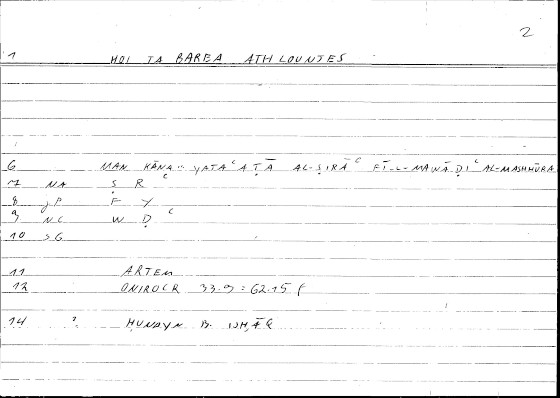 2
1 HOI TA BAREA ATHLOUNTES
6 MAN KĀNA.. YATAʿĀṬĀ AL-ṢIRĀʿ FĪ-L-MAWĀḌIʿ AL-MASHHŪRA
7 NA Ṣ R ʿ
8 JP F Y
9 NC W Ḍ ʿ
10 SG
11 ARTEM
12 ONIROCR 33.9 = 62.15 f
14 ? ḤUNAYN B. ISḤĀQ